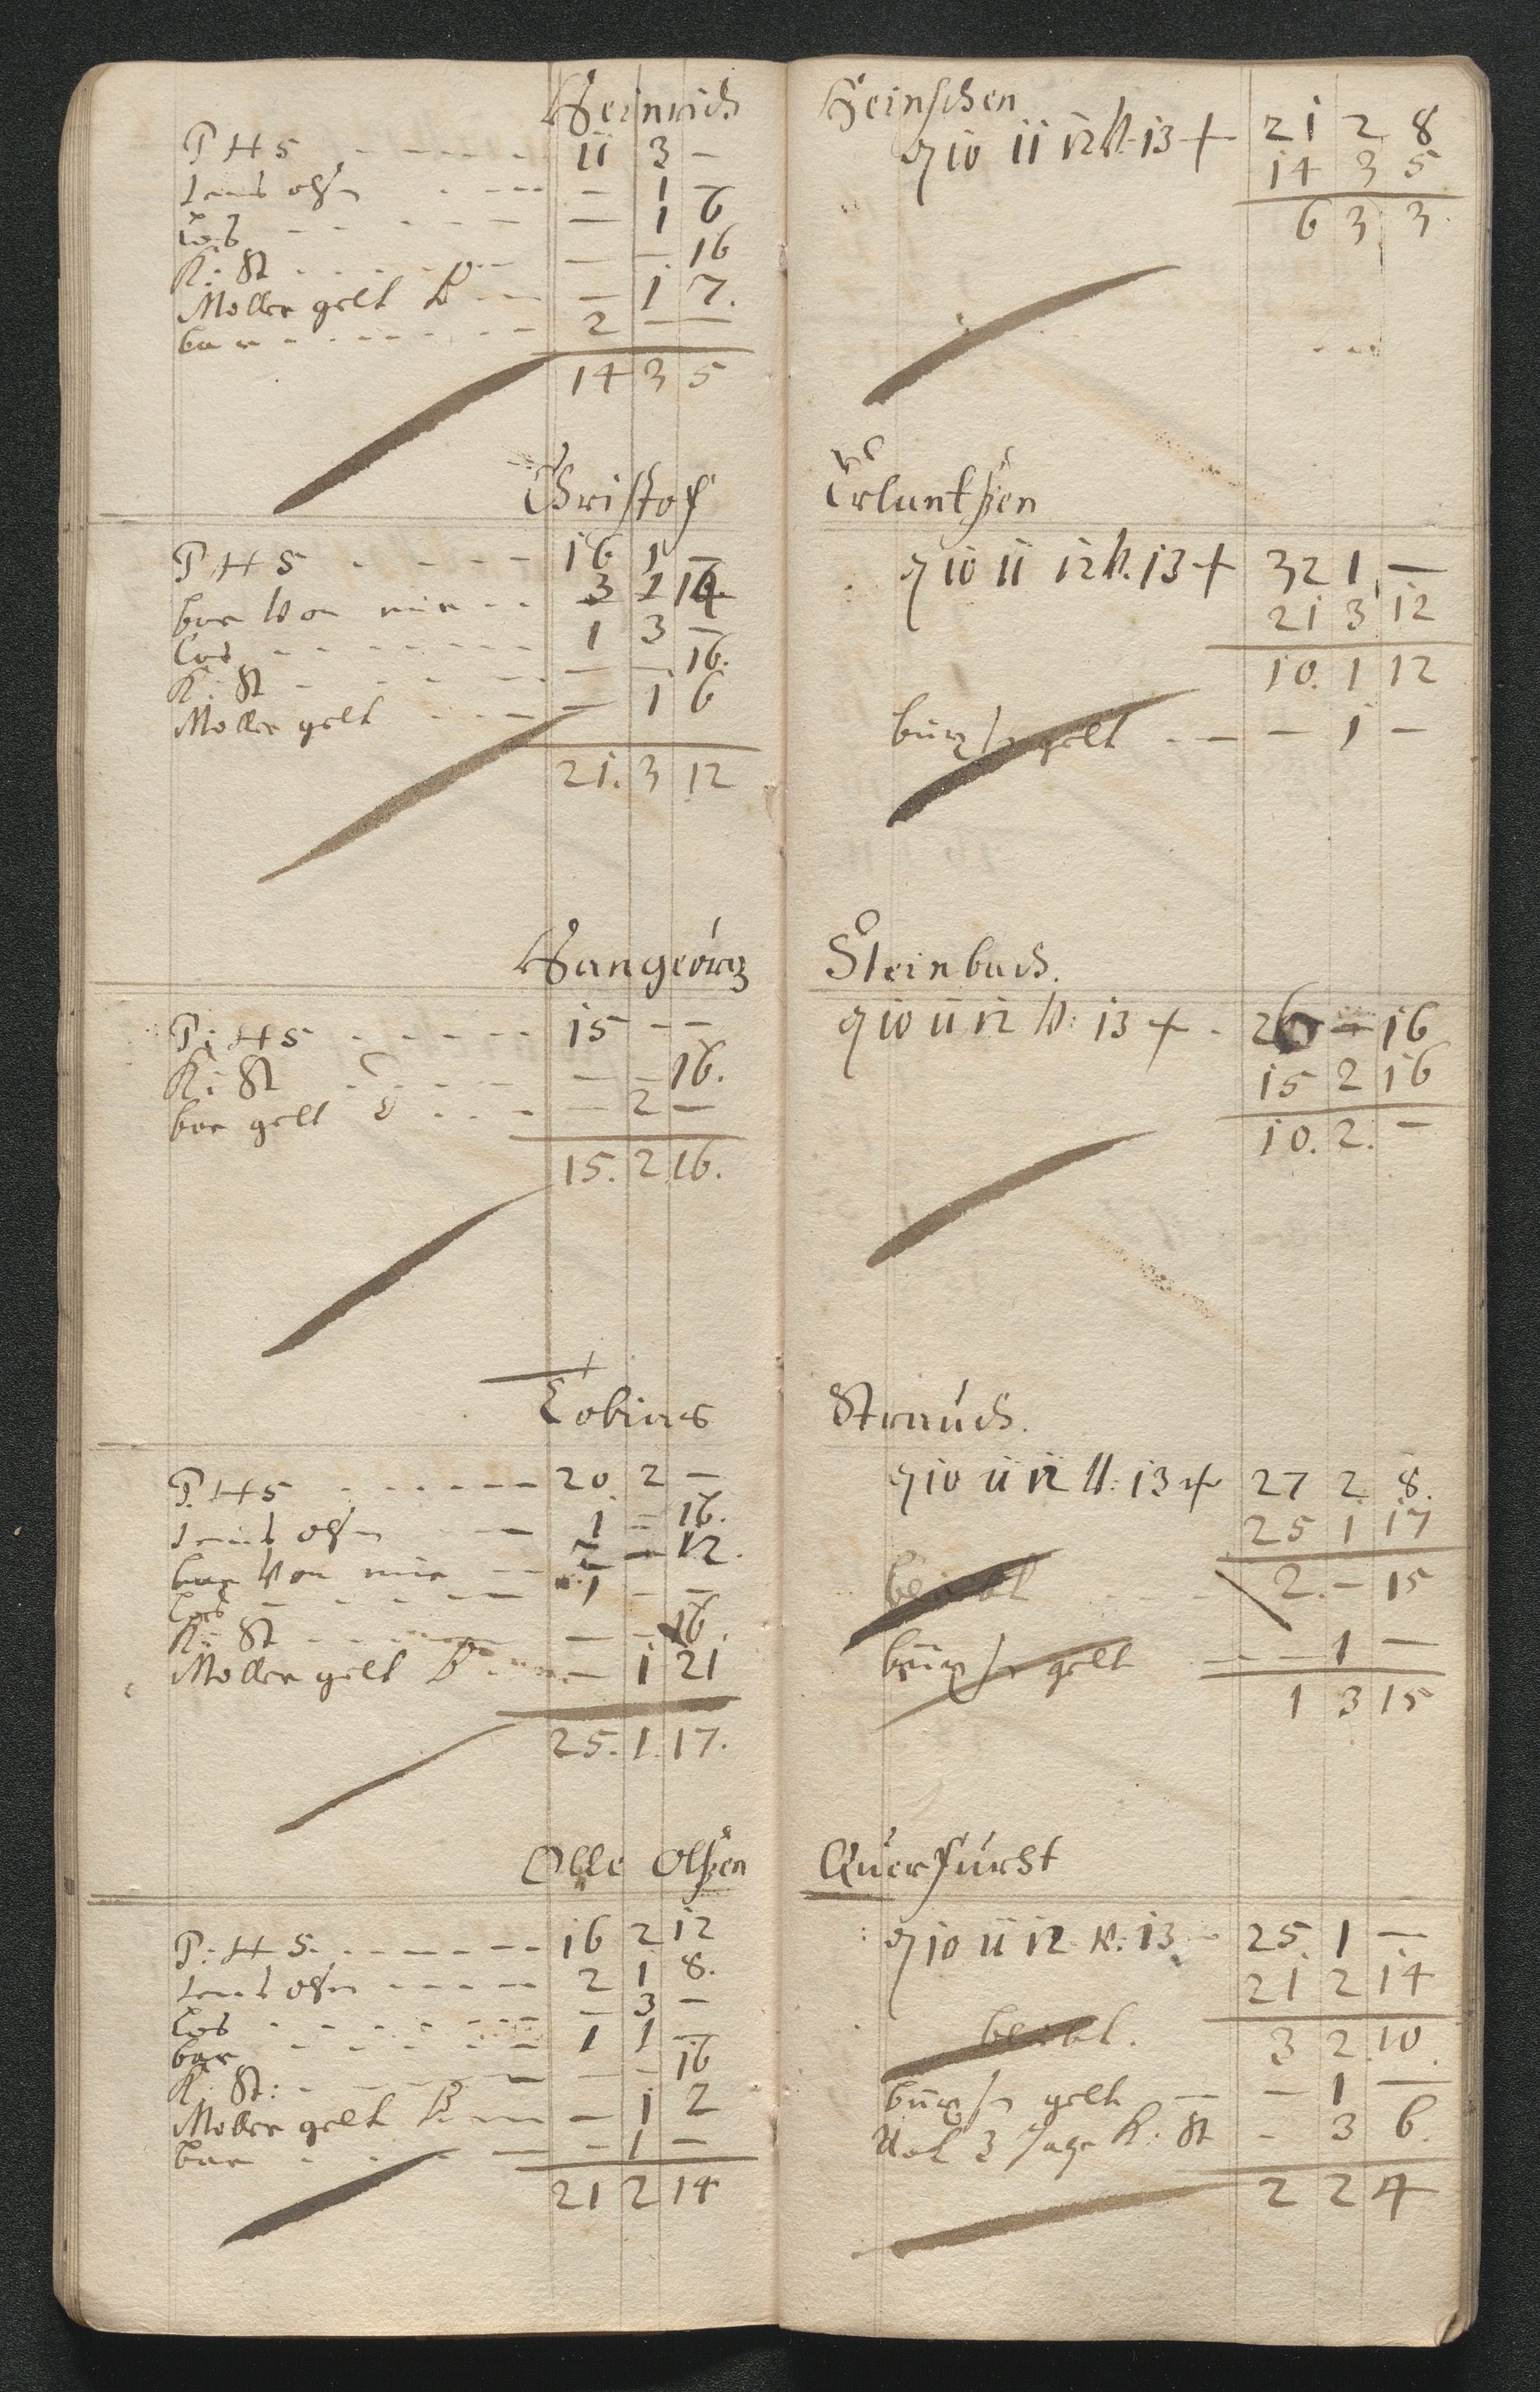 Heinrich
P H S - - - - - 11 3 -
- 1 -
Cos - - - - - 1 6
K: St - - - - - 16
Moller gelt - - 1 7.
bar - - - - - 2 - -
14 3 5
Christof
P H S - - - - 16 1 -
bar Von mir - - 3 2 14
Cos - - - - - 1 3 -
K: St - - - - - 16.
Moller gelt - - - - 1 6
21. 3 12
Hangeörg
P: H S - - - - - 15 - -
K: St - - - - - - 16.
bar gelt - - - - 2 -
15. 2 16.
Tobias
P. H S - - - - - 20 2 -
1 - 16.
bar Von mir - - 2 - 12.
Cos - - - - - 1 - -
K: St - - - - - - 16.
Moller gelt - - - 1 21
25. 1. 17.
Olle Olßen
P. H S. - - - - - 16 2 12
2 1 8.
Cos - - - - - - 3 -
bar - - - - - 1 1 -
K: St: - - - - - - 16
Moller gelt - - - 1 2
bar - - - - - 1 -
21 2 14
Heinschen
9 10 11 12 V. 13 + 21 2 8
14 3 5
6 3 3.
Erluntßen
9 10 11 12 V. 13 + 32 1 -
21 3 12
10. 1 12
gelt - - - 1 -
Steinbach.
9 10 11 12 V: 13 + - 26 - 16
15 2 16
10. 2. -
Strauch.
9 10 11 12 V: 13 + 27 2 8.
25 1 17
2. - 15
gelt - - 1 -
1 3 15
Querfürst
9 10 11 12 V: 13 - 25. 1 -
21 2 14
3 2 10.
gelt - - 1 -
3 K: St - 3 6.
2 2 4